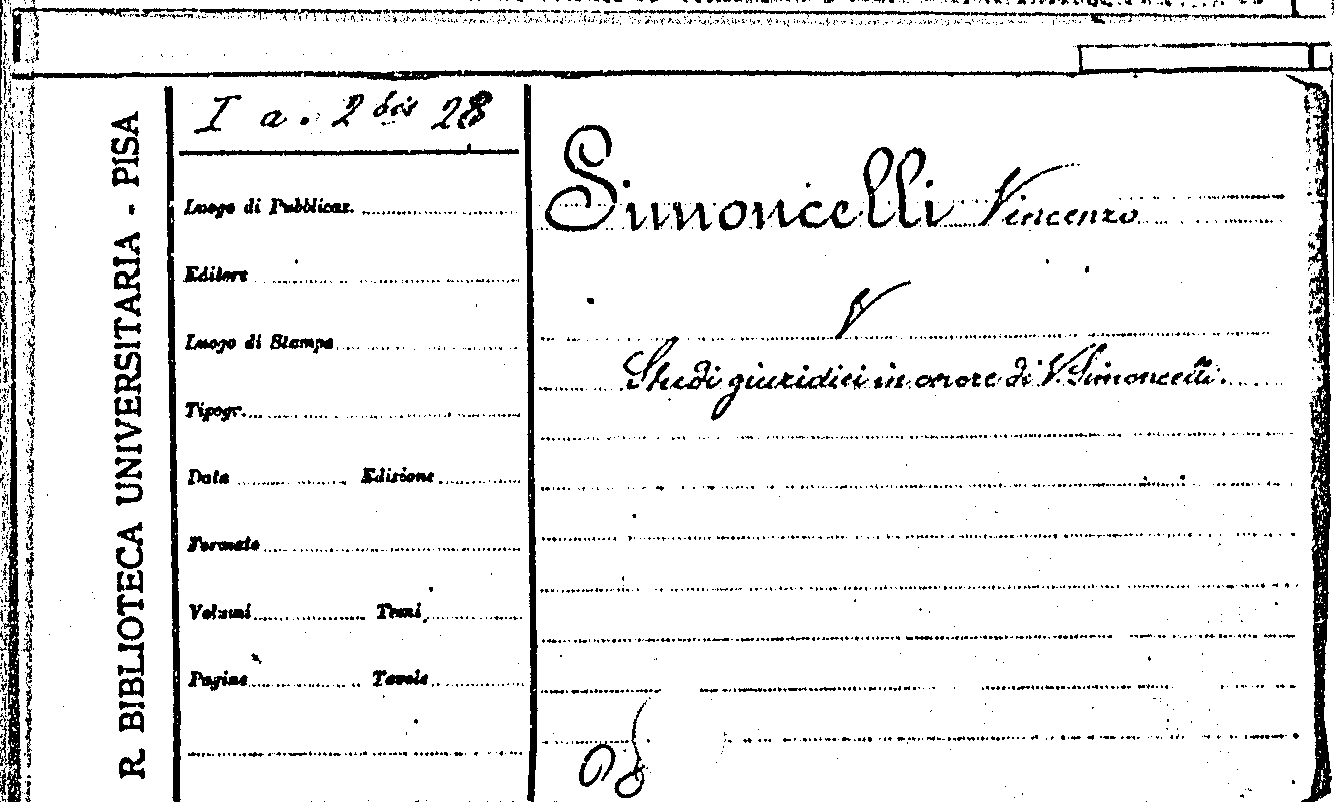 R. BIBLIOTECA UNIVERSITARIA - PISA
I a. 2 bis 28
Luogo di Pubblicaz.
Editore
Luogo di Stampa
Tipogr.
Data Edizione
Formato
Volumi Tomi
Pagine Tavole
Simoncelli Vincenzo
V
Studi giuridici in onore di V. Simoncelli.